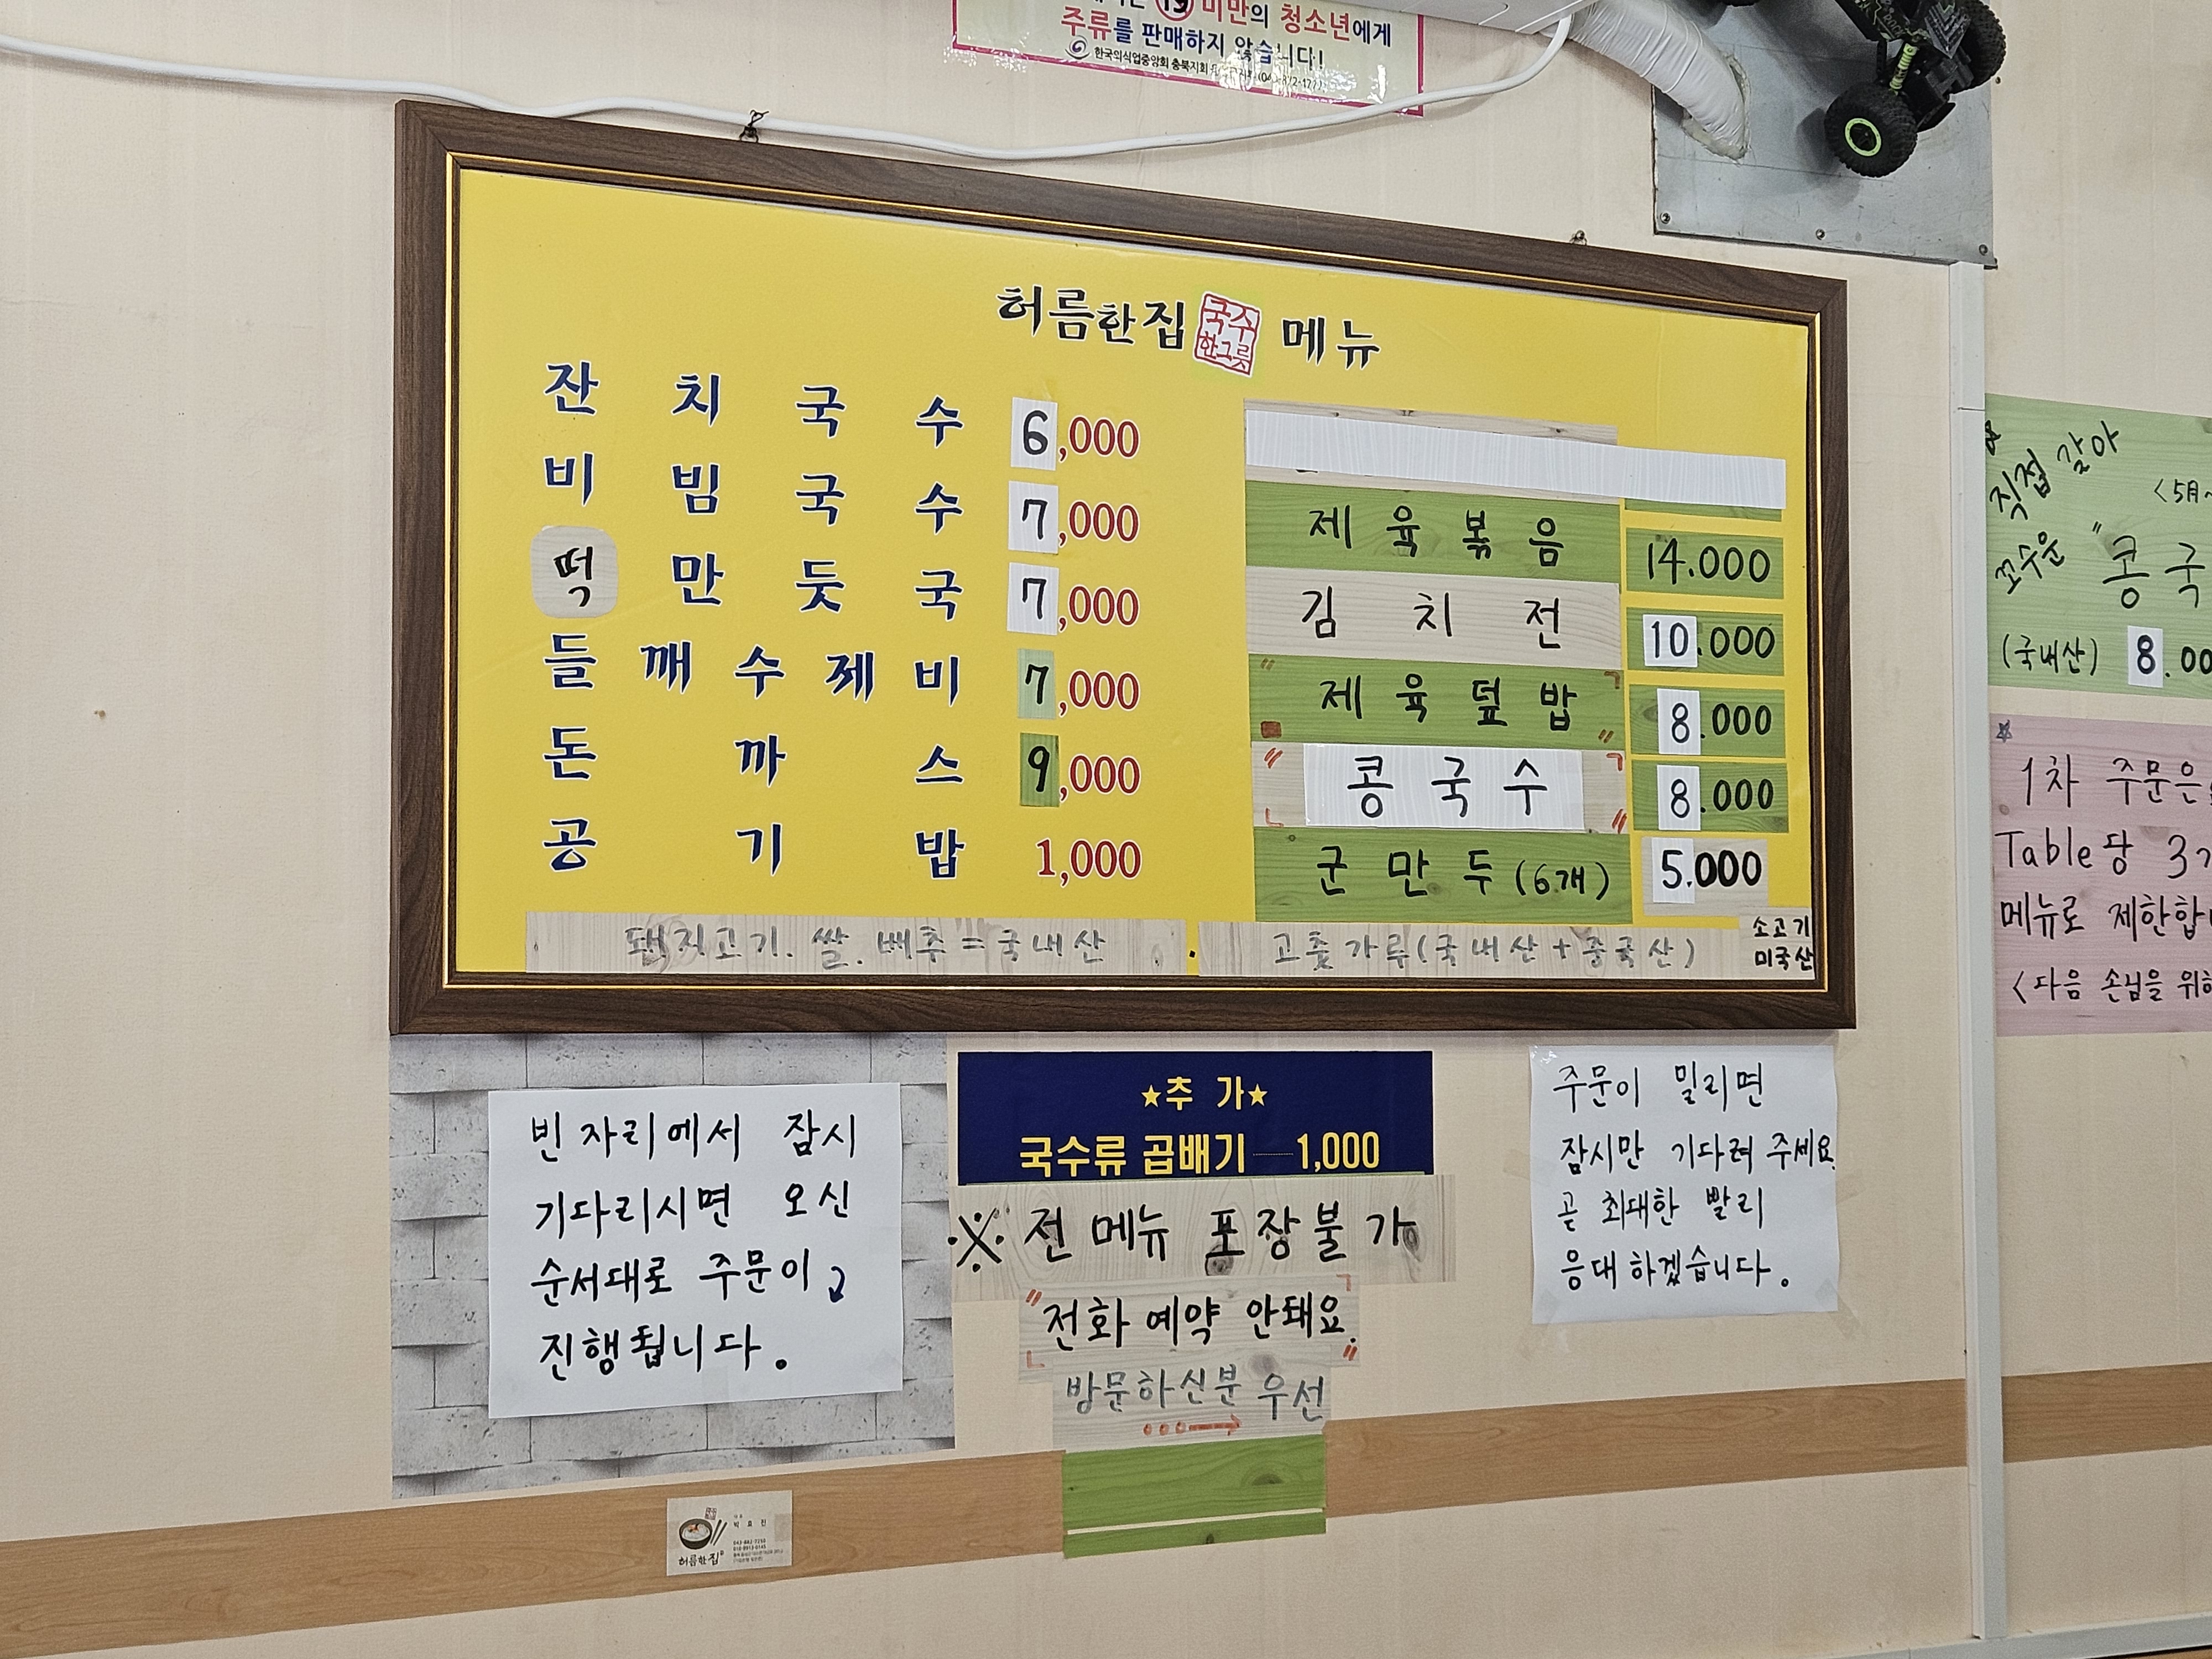 19 미만의 청소년에게
주류를 판매하지 않습니다!
한국외식업중앙회 충북지회
허름한집 국수한그릇 메뉴
잔치국수 6,000
비빔국수 7,000
떡만둣국 7,000
들깨수제비 7,000
돈까스 9,000
공기밥 1,000
제육볶음 14.000
김치전 10.000
제육덮밥 8.000
콩국수 8.000
군만두(6개) 5.000
돼지고기. 쌀. 배추=국내산
고춧가루(국내산+중국산)
소고기
미국산
빈자리에서 잠시
기다리시면 오신
순서대로 주문이
진행됩니다.
★추 가★
국수류 곱배기 1,000
※ 전 메뉴 포장불가
"전화 예약 안돼요."
방문하신분 우선
주문이 밀리면
잠시만 기다려 주세요.
곧 최대한 빨리
응대하겠습니다.
직접 갈아
<5月~
꼬수운 "콩국
(국내산) 8.00
1차 주문은
Table당 3
메뉴로 제한합
<다음 손님을 위하
허름한집